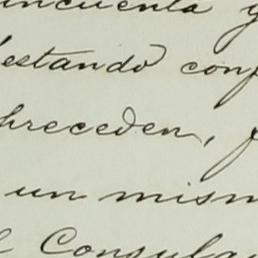 incuenta y
estando conf
preceden,
un mism
Consula